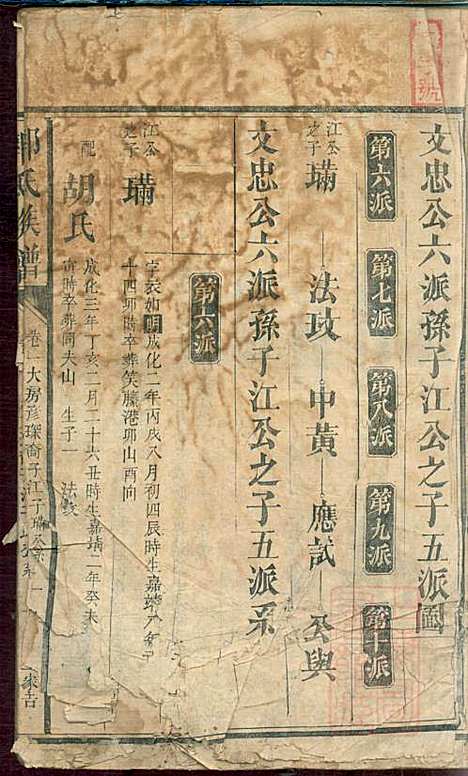 文忠公六派孫子江公之子五派圖
第六派 第七派 第八派 第九派 第十派
江公之子 璊 法玟 中黃 應試 至與
文忠公六派孫子江公之子五派系
第六派
江公之子 璊 明成化二年丙戌八月初四辰時生嘉靖
十四卯時卒葬笑藤港卯山酉向
配 胡氏 成化三年丁亥二月二十六丑時生嘉靖二年癸未
時卒葬同夫山 生子一 法玟
氏族譜
卷一大房彥琛裔子江